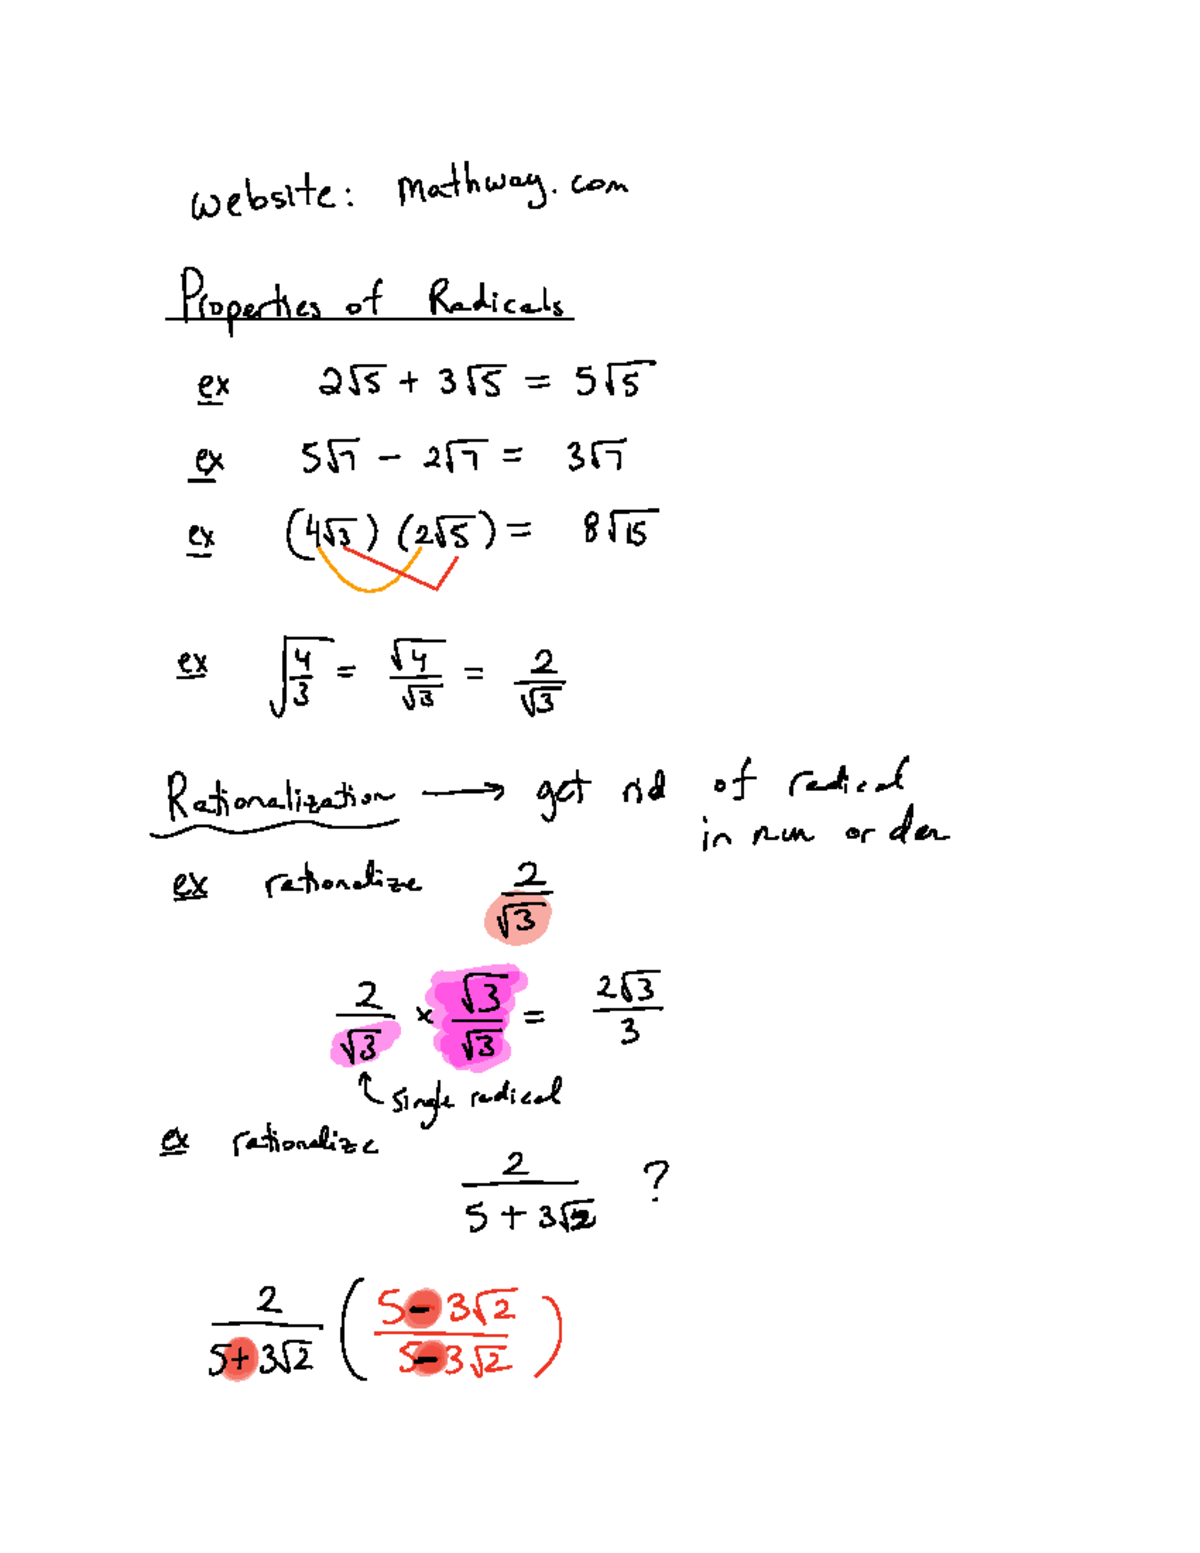 website: mathway.com
Properties of Radicals
ex 2√5 + 3√5 = 5√5
ex 5√7 − 2√7 = 3√7
ex (4√3) (2√5) = 8√15
ex √(4/3) = √4/√3 = 2/√3
Rationalization → get rid of radical
in num or den
ex rationalize 2/√3
2/√3 × √3/√3 = 2√3/3
↑ single radical
ex rationalize
2/(5 + 3√2) ?
2/(5+3√2) ((5−3√2)/(5−3√2))